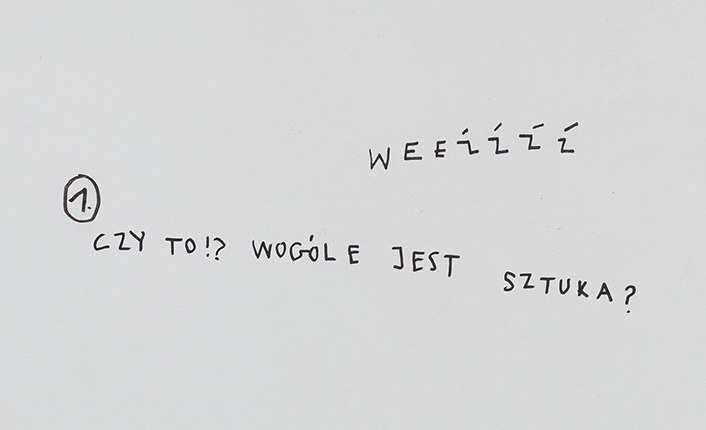 WEEŹŹŹŹ
1.
CZY TO!? WOGÓLE JEST SZTUKA?